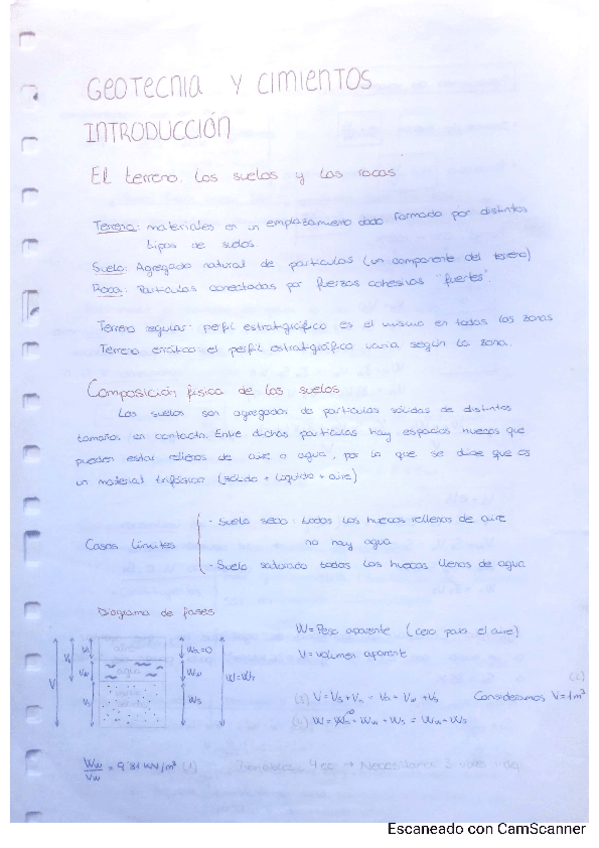 GEOTECNIA Y CIMIENTOS
INTRODUCCIÓN
El terreno. Los suelos y las rocas
Terreno: materiales en un emplazamiento dado formado por distintos
tipos de suelos.
Suelo: Agregado natural de partículas (un componente del terreno)
Roca: Partículas conectadas por fuerzas cohesivas "fuertes".
Terreno regular: perfil estratigráfico es el mismo en todas las zonas
Terreno errático: el perfil estratigráfico varía según la zona.
Composición física de los suelos
Los suelos son agregados de partículas sólidas de distintos
tamaños en contacto. Entre dichas partículas hay espacios huecos que
pueden estar rellenos de aire o agua, por lo que se dice que es
un material trifásico (sólido + líquido + aire)
Casos límites
- Suelo seco: todos los huecos rellenos de aire
no hay agua
- Suelo saturado todos los huecos llenos de agua
Diagrama de fases
W = Peso aparente (cero para el aire)
V = volumen aparente
agua
Ww
Ws
Consideramos V = 1m³
Ww/Vw = 9'81 kN/m³ (1)
Escaneado con CamScanner